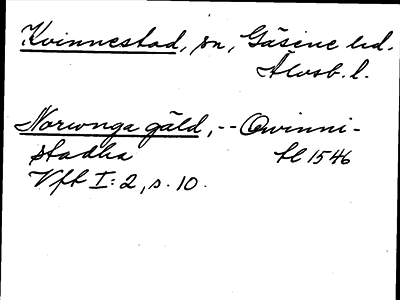 Kvinnestad, sn, Gäsene hd.
Älvsb. l.
Norunga gäld, -- Qvinni-
stadha tl 1546
Vfb I: 2, s. 10.